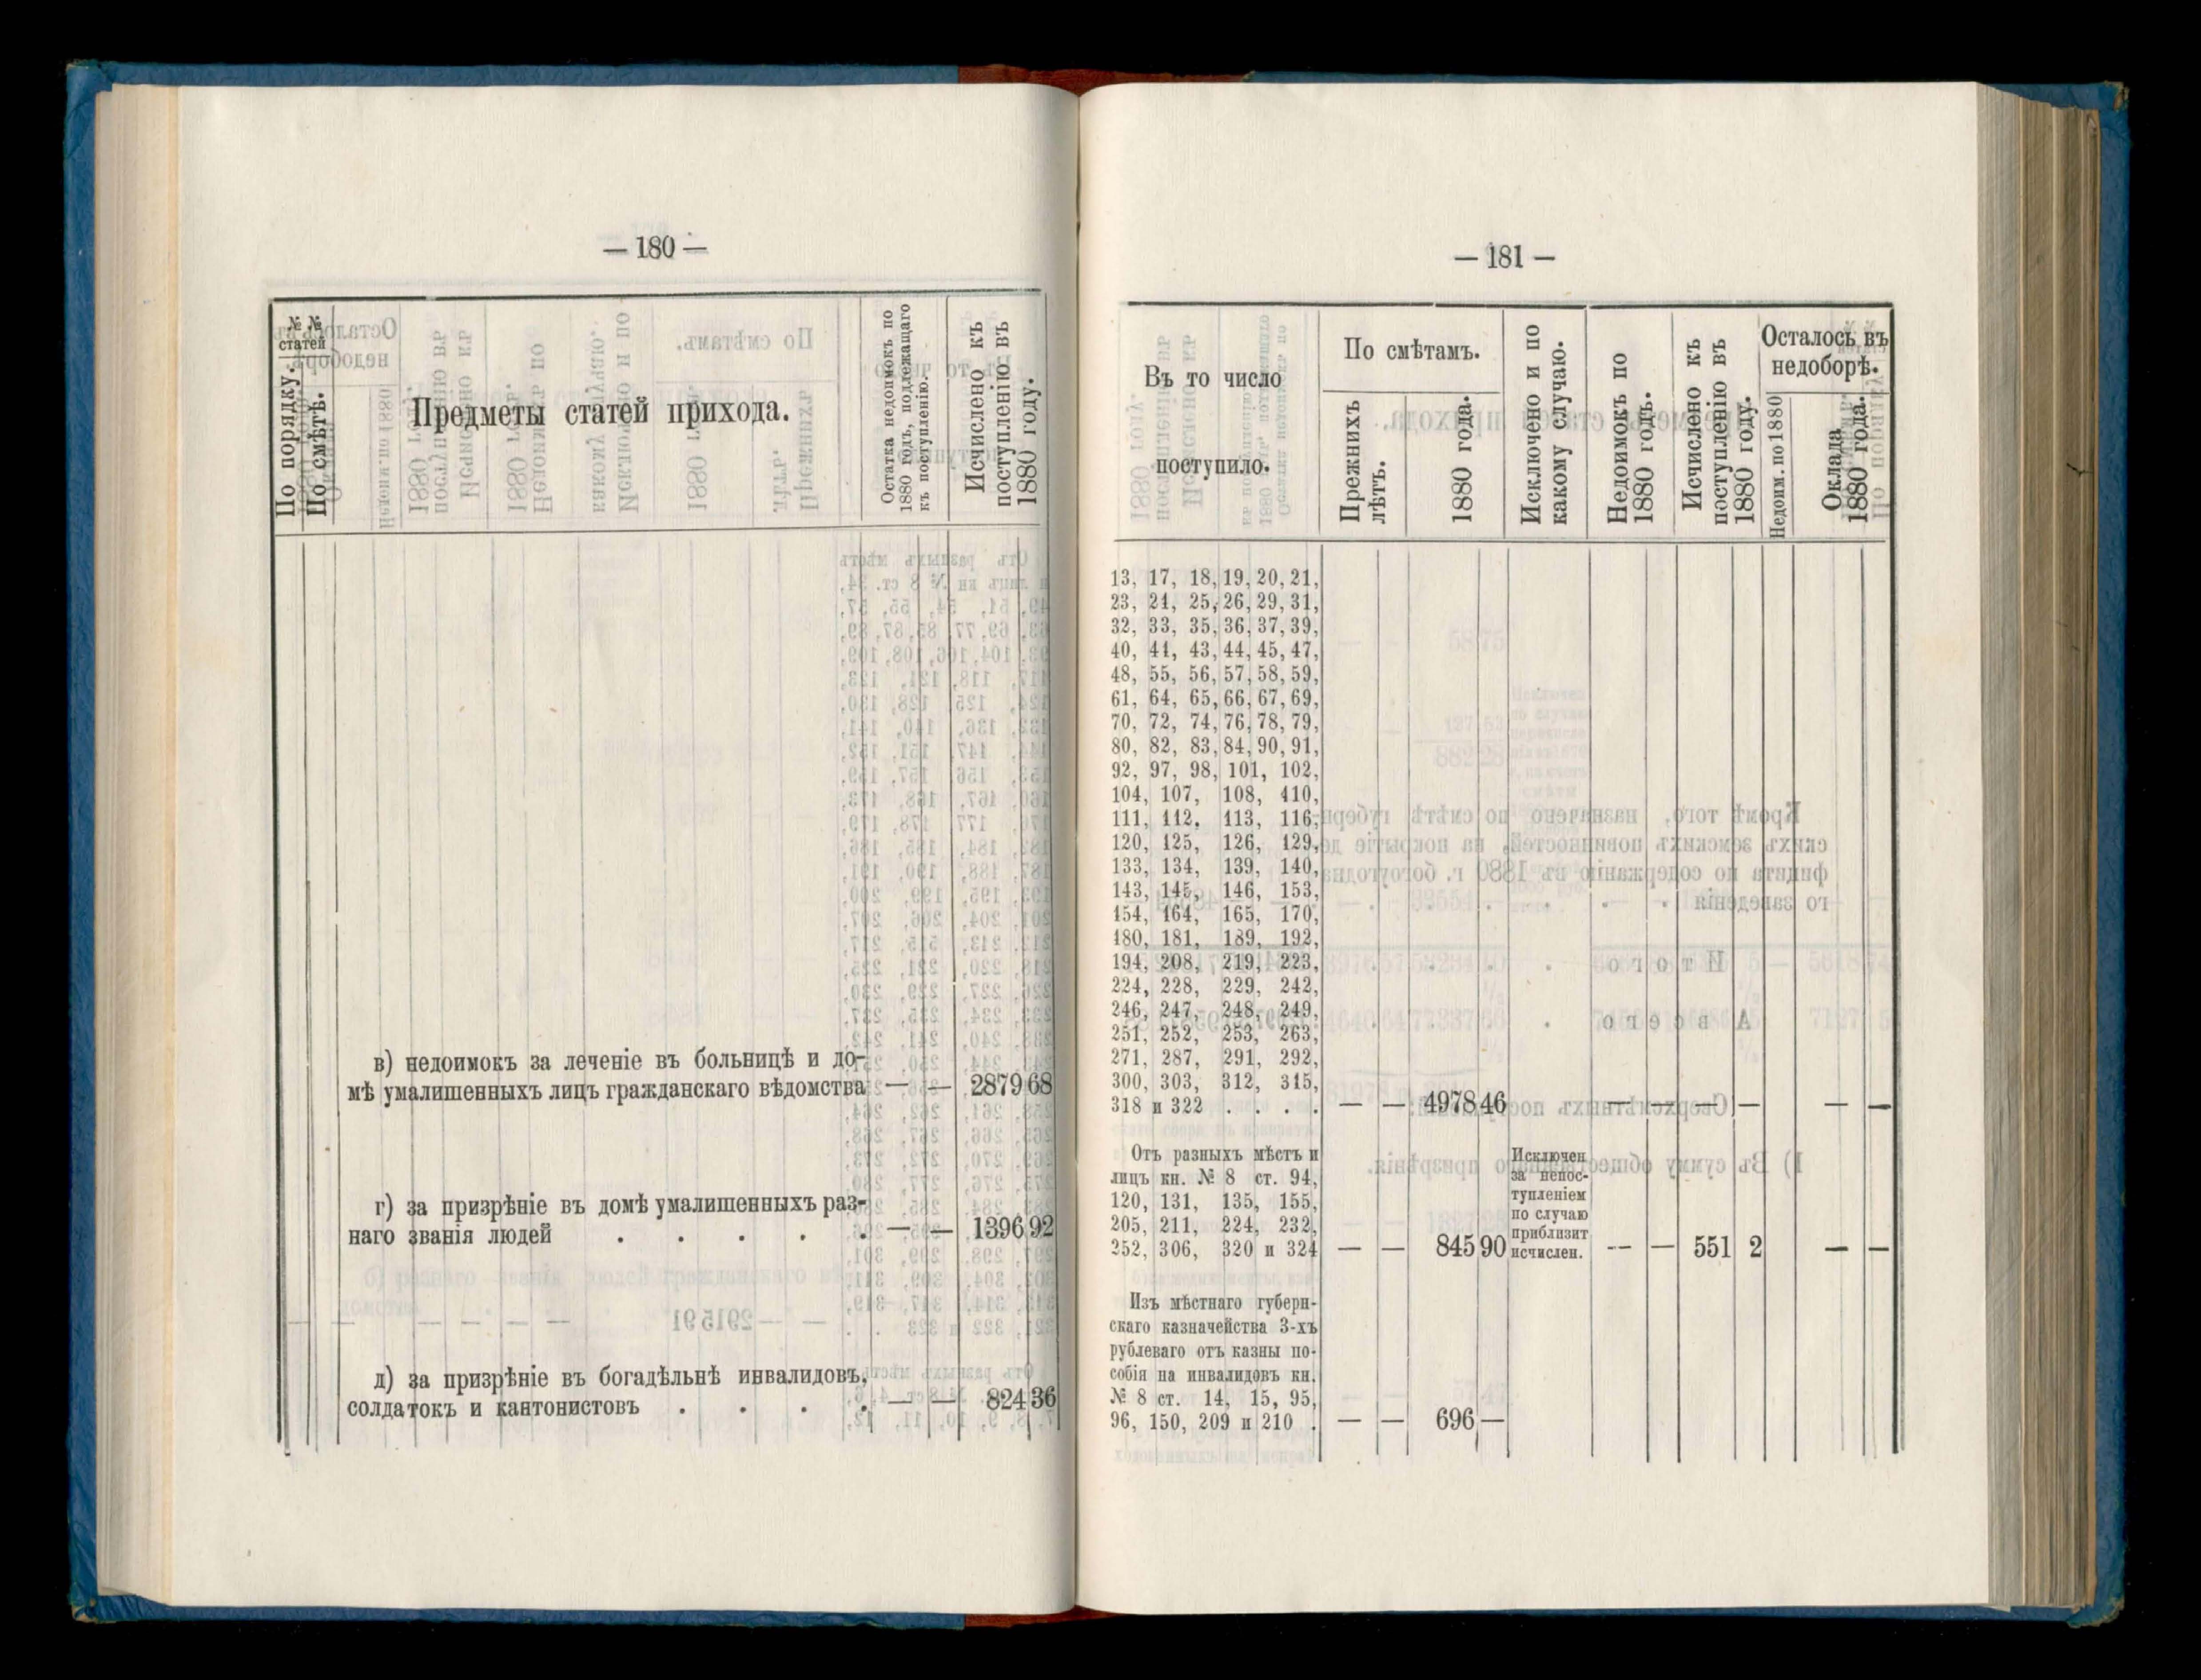 — 180 —
№ №
статей
По порядку.
По смѣтѣ.
Предметы статей прихода.
Остатка недоимокъ по
1880 годъ, подлежащаго
къ поступленію.
Исчислено къ
поступленію въ
1880 году.
в) недоимокъ за леченіе въ больницѣ и до-
мѣ умалишенныхъ лицъ гражданскаго вѣдомства — — 2879 68
г) за призрѣніе въ домѣ умалишенныхъ раз-
наго званія людей . . . . . — — 1396 92
д) за призрѣніе въ богадѣльнѣ инвалидовъ,
солдатокъ и кантонистовъ . . . . — — 824 36
— 181 —
Въ то число
поступило.
По смѣтамъ.
Прежнихъ
лѣтъ.
1880 года.
Исключено и по
какому случаю.
Недоимокъ по
1880 годъ.
Исчислено къ
поступленію въ
1880 году.
Осталось въ
недоборѣ.
Недоим. по 1880
Оклада
1880 года.
13, 17, 18, 19, 20, 21,
23, 24, 25, 26, 29, 31,
32, 33, 35, 36, 37, 39,
40, 41, 43, 44, 45, 47,
48, 55, 56, 57, 58, 59,
61, 64, 65, 66, 67, 69,
70, 72, 74, 76, 78, 79,
80, 82, 83, 84, 90, 91,
92, 97, 98, 101, 102,
104, 107, 108, 110,
111, 112, 113, 116,
120, 125, 126, 129,
133, 134, 139, 140,
143, 145, 146, 153,
154, 164, 165, 170,
180, 181, 189, 192,
194, 208, 219, 223,
224, 228, 229, 242,
246, 247, 248, 249,
251, 252, 253, 263,
271, 287, 291, 292,
300, 303, 312, 315,
318 и 322 . . . . — — 4978 46 — — — — — —
Отъ разныхъ мѣстъ и
лицъ кн. № 8 ст. 94,
120, 131, 135, 155,
205, 211, 224, 232,
252, 306, 320 и 324 — — 845 90
Исключен
за непос-
тупленіем
по случаю
приблизит
исчислен. — — 551 2 — —
Изъ мѣстнаго губерн-
скаго казначейства 3-хъ
рублеваго отъ казны по-
собія на инвалидовъ кн.
№ 8 ст. 14, 15, 95,
96, 150, 209 и 210 . — — 696 —